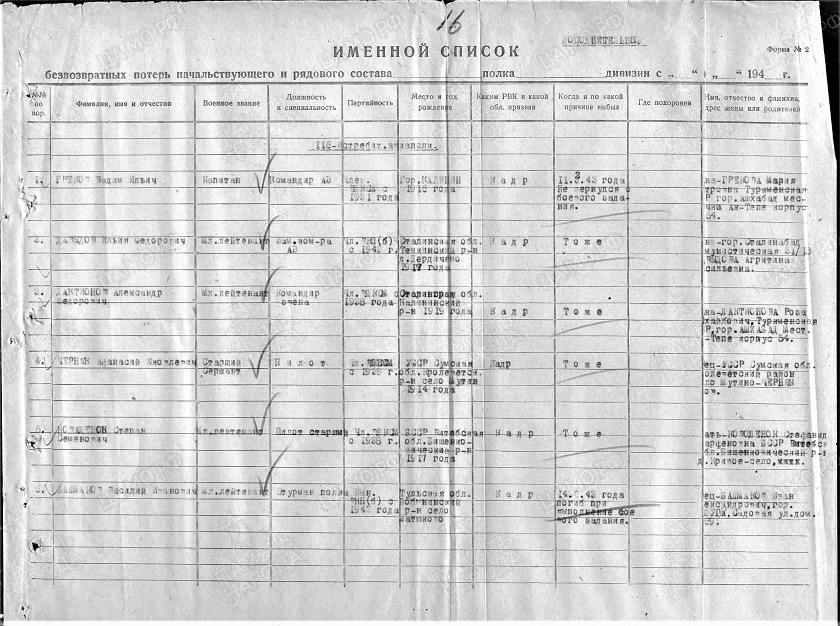 16
ДОПОЛНИТЕЛЬН.
ИМЕННОЙ СПИСОК
Форма № 2
безвозвратных потерь начальствующего и рядового состава полка дивизии с „ “ „ “ 194 г.
№№ по пор.
Фамилия, имя и отчество
Военное звание
Должность и специальность
Партийность
Место и год рождения
Каким РВК и какой обл. призван
Когда и по какой причине выбыл
Где похоронен
Имя, отчество и фамилия, адрес жены или родителей
116-Истребит.авиаполк.
1. ГРЕКОВ Вадим Ильич
Капитан
Командир АЭ
Член
ВЛКСМ с
1931 года
Гор.КАЛИНИН
1916 года
Кадр
11.2.43 года
Не вернулся с
боевого зада-
ния.
на-ГРЕКОВА Мария
тровна Туркменская
Р гор.Ашхабад мес-
чко Ак-Тепе корпус
54.
2. ДАВЫДОВ Илья Федорович
Мл.лейтенант
Зам.ком-ра
АЭ
Чл.ВКП(б)
с 1942 г.
Сталинская обл.
Темкинский р-н
1917 года
Кадр
Тоже
на-гор.Сталинабад
мунистическая
Агритина
сильевна.
3. ЛАКТИОНОВ Александр
Федорович
Мл.лейтенант
Командир
звена
Чл.ВЛКСМ с
1938 года
Сталинград обл.
Калининский
р-н 1919 года
Кадр
Тоже
на-ЛАКТИОНОВА Роза
Туркменская
Р,гор.АШХАБАД Мест.
-Тепе корпус 54.
4. ЧЕРНЯК Афанасий Яковлевич
Старший
Сержант
Пилот
Чл.ВЛКСМ
с 1939 г.
УССР Сумская
обл.Кролеветск.
р-н село Мутин
1914 года
Кадр
Тоже
ец-УССР Сумская обл.
олеветский район
ло Мутино-ЧЕРНЯК
ов.
5. КОВАЛЕНОК Степан
Семенович
Мл.лейтенант
Пилот старший
Чл.ВЛКСМ
с 1938 г.
БССР Витебская
обл.Бишенко-
вический р-н
1917 года
Кадр
Тоже
ать-КОВОЛЕНОК Стефанид
арфеновна БССР Витебск
бл.Бишенковический р-н
д.Кривое-село,
6. БАШМАКОВ Василий Иванович
Мл.лейтенант
Штурман полка
Кан.
ВКП(б) с
1942 года
Тульская обл.
р-н село
Кадр
14.2.43 года
погиб при
выполнение бое
вого задания.
ец-БАШМАКОВ Иван
ександрович,гор.
Садовая ул.дом.